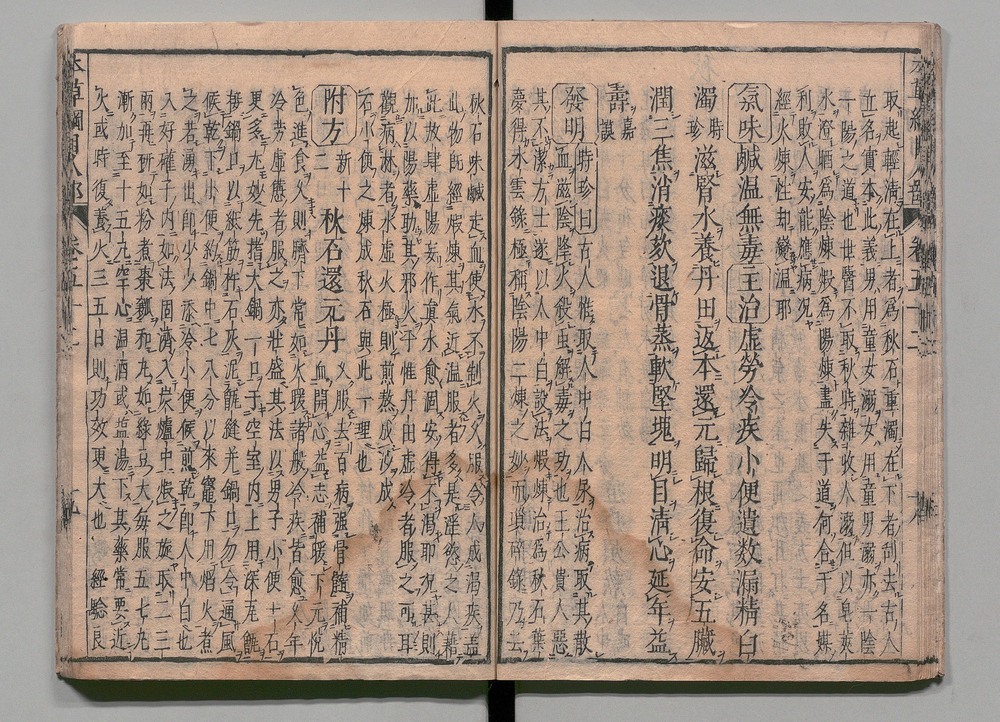 取起輕清在上者爲秋石重濁在下者刮去古人
立名實本此義男用童女溺女用童男溺亦一陰
一陽之道也世醫不取秋時雜收人溺但以皂莢
水澄晒爲陰煉煆爲陽煉盡失于道何合于名媒
利敗人安能應病况
經火煉性却變溫耶
氣味鹹温無毒主治虛勞冷疾小便遺數漏精白
濁時珍滋腎水養丹田返本還元歸根復命安五臟
潤三焦消痰欬退骨蒸軟堅塊明目清心延年益
壽嘉謨
發明時珍曰古人惟取人中白人尿治病取其散
血滋陰降火殺虫解毒之功也王公貴人惡
其不潔方士遂以人中白設法煆煉治爲秋石葉
夢得水雲錄極稱陰陽二煉之妙而瑣碎錄乃云
秋石味鹹走血使水不制火久服令人成渴疾盖
此物師經煆煉其氣近温服者多是淫慾之人藉
此放肆虛陽妄作真水愈涸安得不渴耶况甚則
加以陽藥助其邪火乎惟丹田虛冷者服之可耳
觀病淋者水虛火極則煎熬成沙成
石小便之煉成秋石與此一理也
附方新十二秋石還元丹久服去百病強骨髓補精
血開心益志補暖下元悅
色進食久則臍下常如火暖諸般冷疾皆愈久年
冷勞虛憊者服之亦壯盛其法以男子小便十石
更多尤妙先指大鍋一口于空室内上用深瓦甑
接鍋口以紙筋杵石灰泥甑縫并鍋口勿令通風
候乾下小便約鍋中七八分以來竈下用焰火煮
之若湧出即少少添冷小便候煎乾即人中白也
入好礶子内如法固濟入炭爐中煆之旋取二三
兩再研如粉煮棗瓤和丸如綠豆大每服五七丸
漸加至十五丸空心温酒或盐湯下其藥常要近
火或時復養火三五日則功效更大也　經驗良